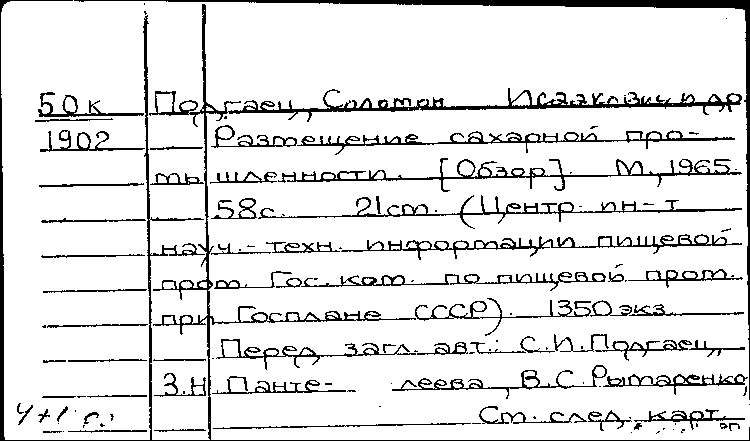 50к Подгаец, Соломон Исаакович и др.
1902 Размещение сахарной про-
мышленности. [Обзор]. М., 1965.
58с. 21см. (Центр. ин-т
науч.-техн. информации пищевой
пром. Гос. ком. по пищевой пром.
при Госплане СССР). 1350 экз.
Перед загл. авт.: С.И. Подгаец,
З.Н. Панте- леева, В.С. Рымаренко
См. след. карт.